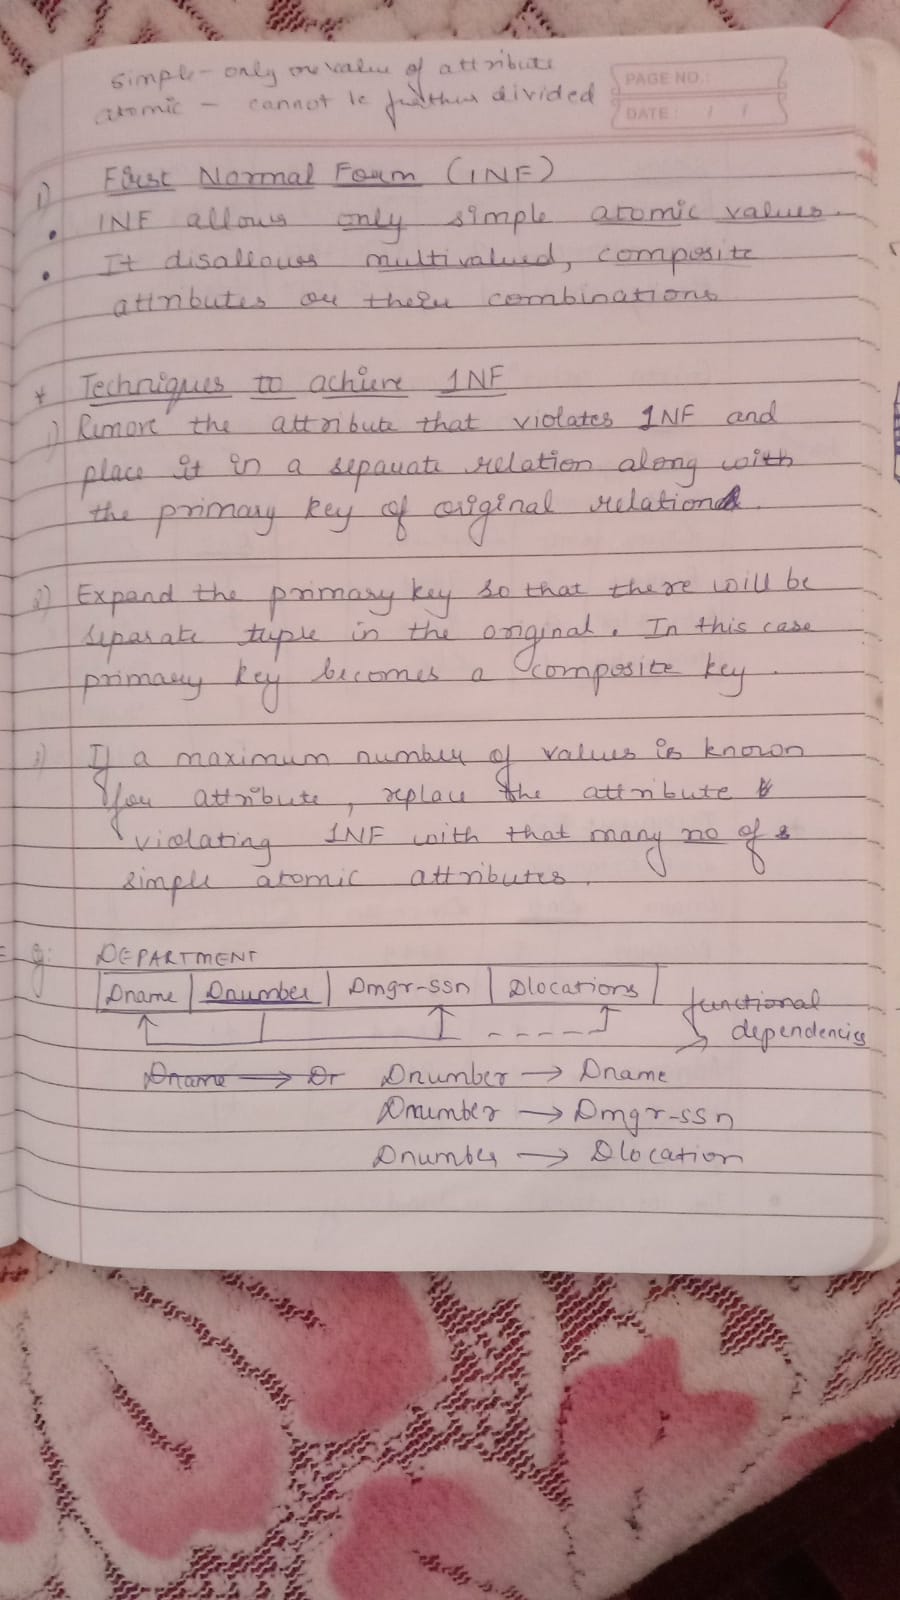 simple - only one value of attribute
atomic - cannot be further divided
PAGE NO.:
DATE: / /
1) First Normal Form (1NF)
• 1NF allows only simple atomic values.
• It disallows multivalued, composite
attributes or their combinations
* Techniques to achieve 1NF
1) Remove the attribute that violates 1NF and
place it in a separate relation along with
the primary key of original relation.
2) Expand the primary key so that there will be
separate tuple in the original. In this case
primary key becomes a composite key.
3) If a maximum number of values is known
for attribute, replace the attribute
violating 1NF with that many no of
simple atomic attributes.
Eg: DEPARTMENT
Dname | Dnumber | Dmgr-ssn | Dlocations
functional
dependencies
Dname → Dr Dnumber → Dname
Dnumber → Dmgr-ssn
Dnumber → Dlocation